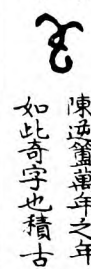 陳逆簠萬年之年
如此奇字也積古